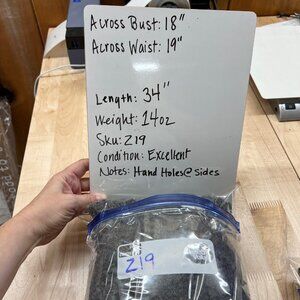 Across Bust: 18"
Across Waist: 19"
Length: 34"
Weight: 14oz
Sku: Z19
Condition: Excellent
Notes: Hand Holes@Sides
Z19